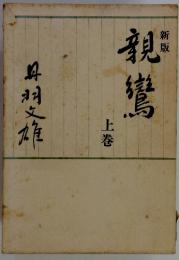 新版
親鸞
上巻
丹羽文雄